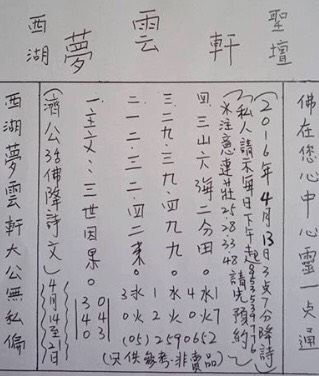 聖壇
軒
雲
夢
西湖
佛在您心中心靈一点通
(2016年4月13日3点7分降詩)
(私人請示每日下午起
※注意連莊25.28.33.48請先預約)
四.三山六海二分田。水火 17 40
三.二九.三九.四九九。水火 27
二.一二.三二.四二來。水火 01 30
一.主文:三世因果。043 340
(05)2590652
(只供參考.非賣品)
(濟公活佛降詩文)4月14至21日
西湖夢雲軒大公無私偏